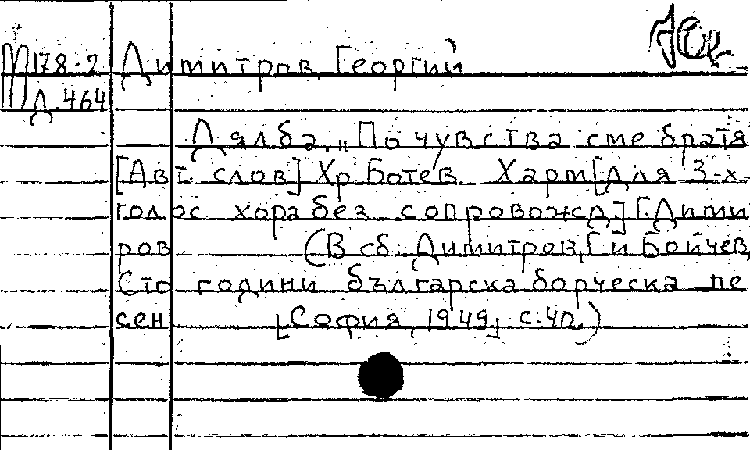 М178-2 Димитров, Георгий
Д 464
Дялба, "По чувства сме братя
[Авт. слов] Хр Ботев. Харм[для 3-х
голос хора без сопровожд] Г. Димит
ров (В сб. Димитров, Г и Бойчев,
Сто години българска борческа пе
сен [София, 1949] с. 40.)